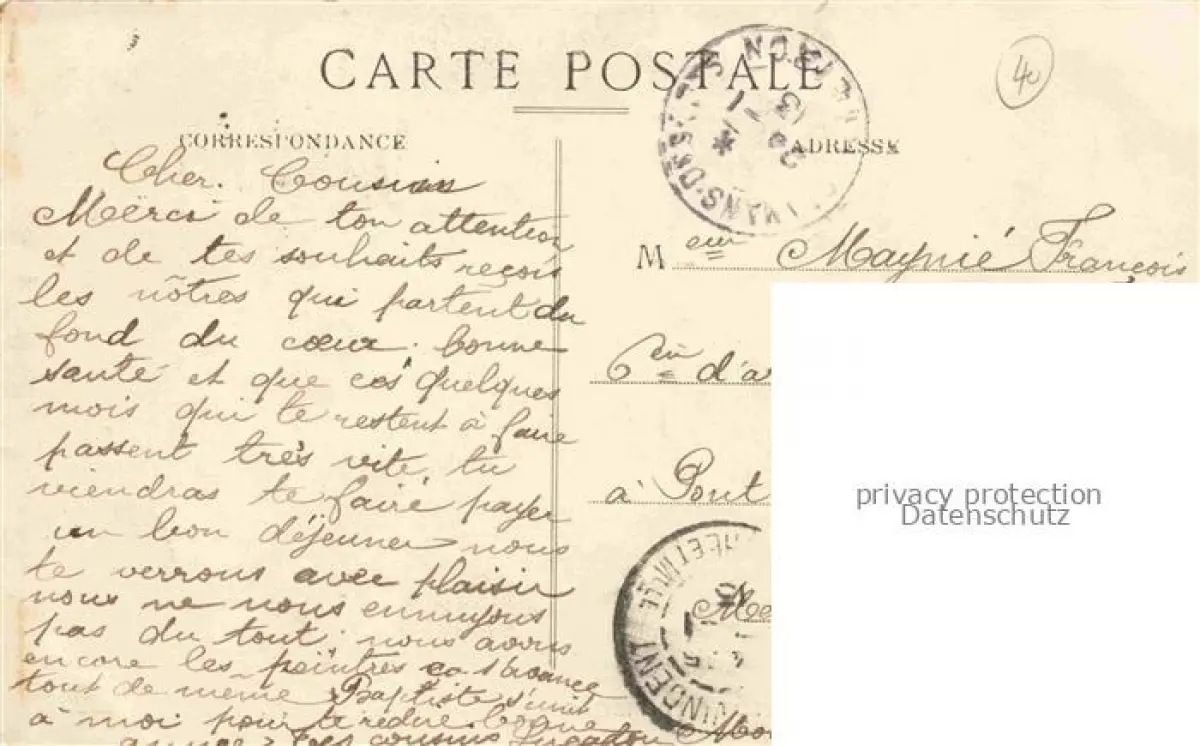 CARTE POSTALE
40
CORRESPONDANCE
ADRESSE
Cher. Cousin
Merci de ton attention
et de tes souhaits reçois
les nôtres qui partent du
fond du cœur. bonne
santé et que ces quelques
mois qui te restent à faire
passent très vite, tu
viendras te faire payer
un bon déjeuner nous
te verrons avec plaisir
nous ne nous ennuyons
pas du tout. nous avons
encore les peintres ça s'avance
tout de même Baptiste s'unit
à moi pour te redire bonne
année Tes cousins
Meur Maynié François
6em d'a
à Pont
privacy protection
Datenschutz